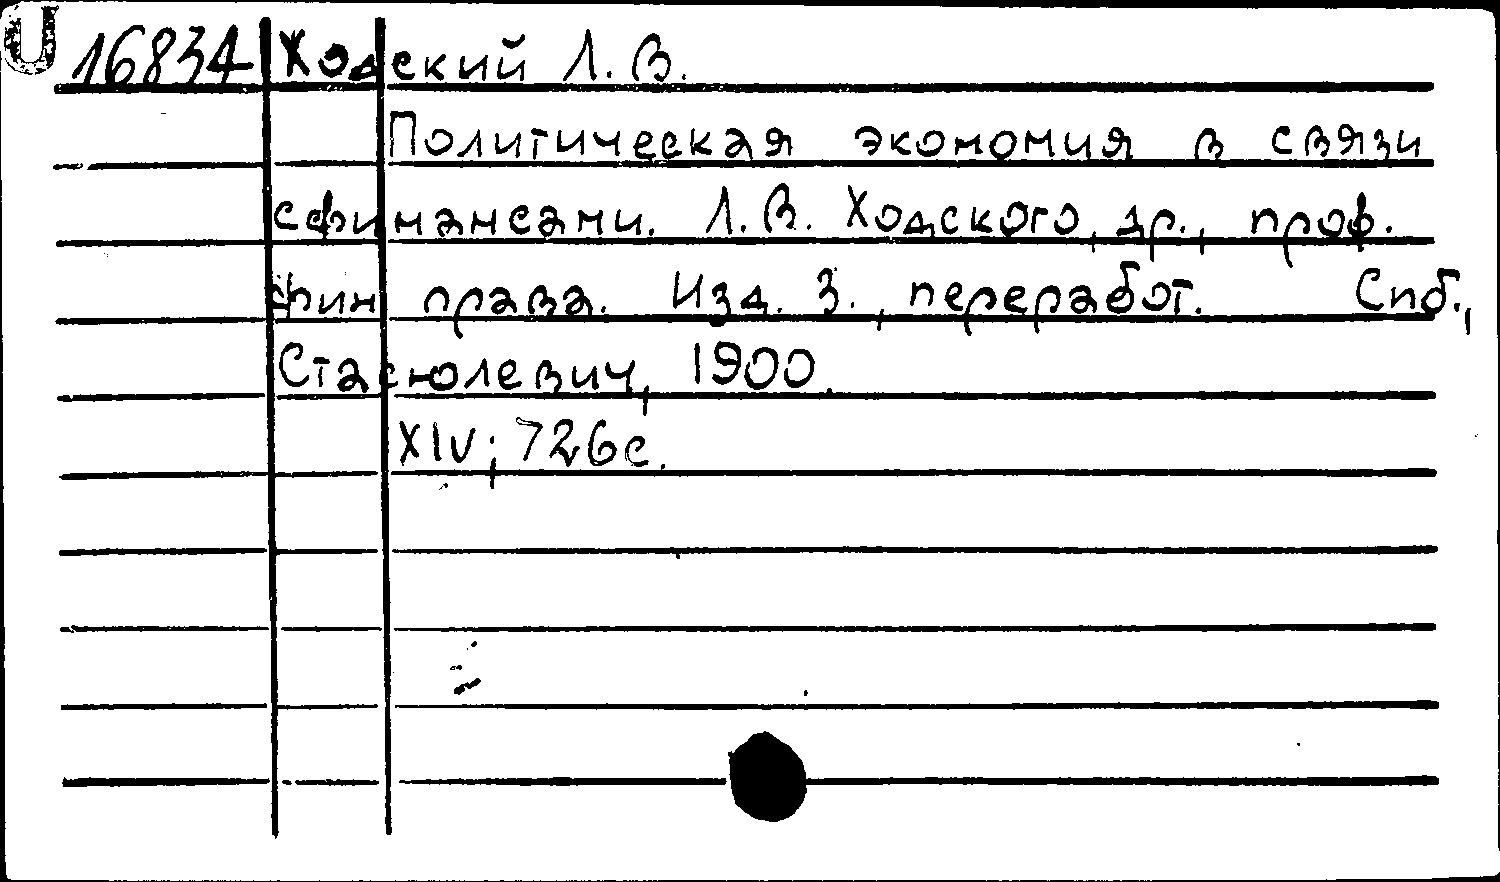 U 16834 Ходский Л. В.
Политическая экономия в связи
с финансами. Л. В. Ходского, др., проф.
фин права. Изд. 3., переработ. Спб.,
Стасюлевич, 1900.
XIV; 726 с.